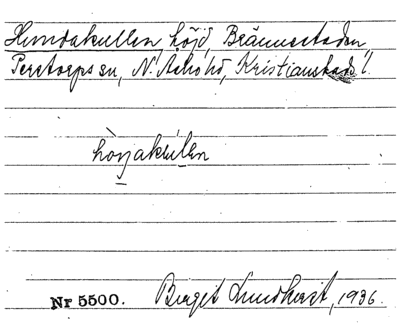 Hundakullen, höjd, Brännestaden,
Perstorps sn, N. Åsbo hd, Kristianstads l.
Nr 5500. Birgit Lundkvist, 1936.